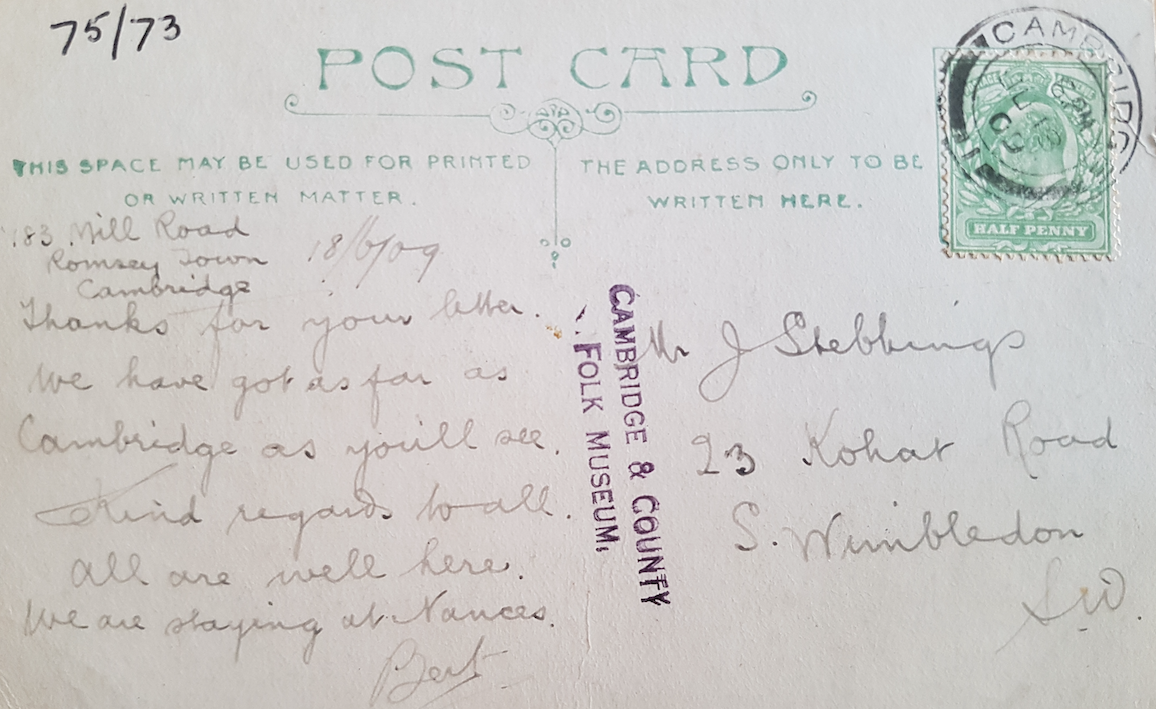 75/73
POST CARD
THIS SPACE MAY BE USED FOR PRINTED
OR WRITTEN MATTER.
THE ADDRESS ONLY TO BE
WRITTEN HERE.
CAMBRIDGE
HALF PENNY
183 Mill Road
Romsey Town
Cambridge
18/6/09
Thanks for your letter.
We have got as far as
Cambridge as you'll see.
Kind regards to all.
All are well here.
We are staying at Nances.
Bert
CAMBRIDGE & COUNTY
FOLK MUSEUM,
Mr J Stebbings
23 Kohat Road
S. Wimbledon
S.W.